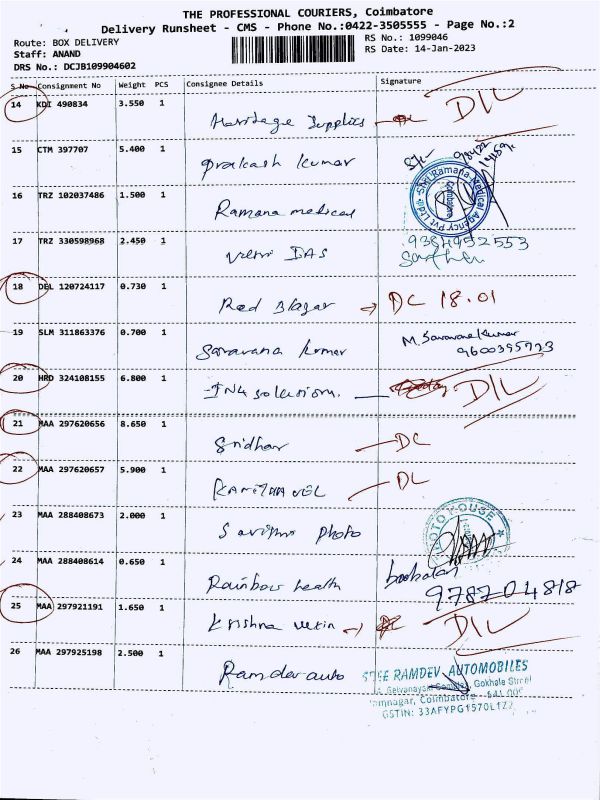 THE PROFESSIONAL COURIERS, Coimbatore
Delivery Runsheet - CMS - Phone No.:0422-3505555 - Page No.:2
Route: BOX DELIVERY
RS No.: 1099046
Staff: ANAND
RS Date: 14-Jan-2023
DRS No.: DCJB109904602
S No Consignment No Weight PCS Consignee Details Signature
14 KDI 490834 3.550 1
Heritage Supplies DL
15 CTM 397707 5.400 1
Prakash Kumar
16 TRZ 102037486 1.500 1
Ramana medical
Shri Ramana Medical Agency Pvt Ltd Coimbatore
17 TRZ 330598968 2.450 1
9384952553
18 DEL 120724117 0.730 1
Red Blazar DC 18.01
19 SLM 311863376 0.700 1
M. Saravana Kumar
Saravana Kumar
20 HRD 324108155 6.800 1
DL
21 MAA 297620656 8.650 1
Sridhar DC
22 MAA 297620657 5.900 1
DL
23 MAA 288408673 2.000 1
Photo
24 MAA 288408614 0.650 1
Rainbow health
25 MAA 297921191 1.650 1
Krishna DL
26 MAA 297925198 2.500 1
Ramdev auto
SREE RAMDEV AUTOMOBILES
Gokhale Street
Coimbatore